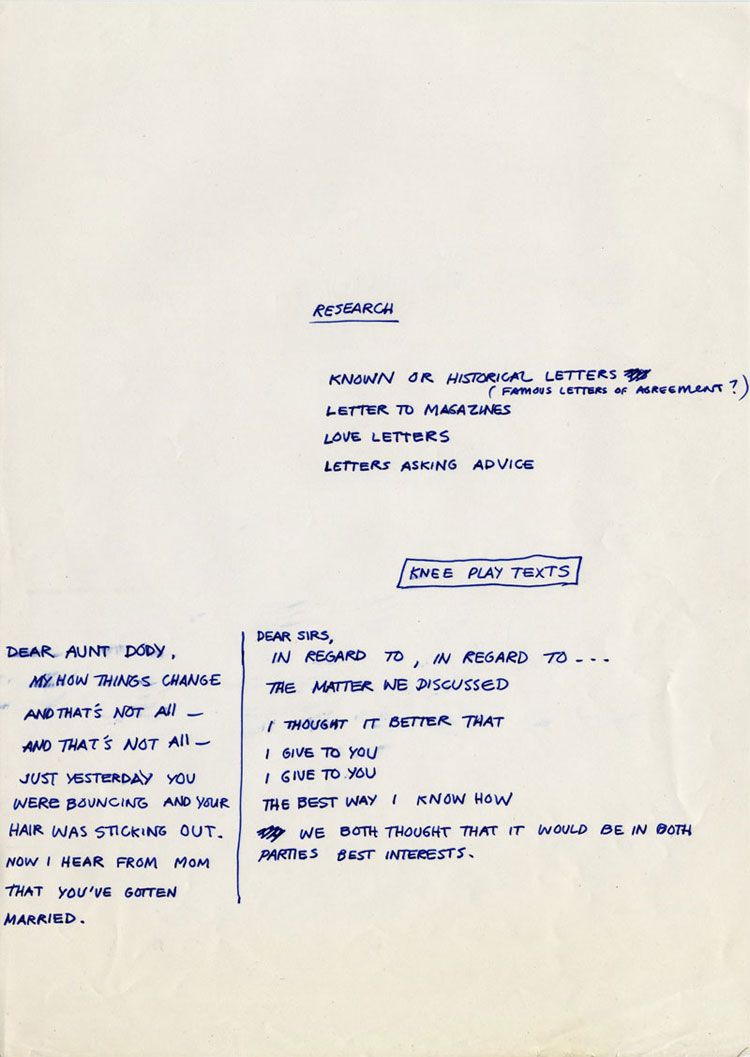 RESEARCH
KNOWN OR HISTORICAL LETTERS
(FAMOUS LETTERS OF AGREEMENT?)
LETTER TO MAGAZINES
LOVE LETTERS
LETTERS ASKING ADVICE
KNEE PLAY TEXTS
DEAR AUNT DODY,
MY HOW THINGS CHANGE
AND THAT'S NOT All —
AND THAT'S NOT All —
JUST YESTERDAY YOU
WERE BOUNCING AND YOUR
HAIR WAS STICKING OUT.
NOW I HEAR FROM MOM
THAT YOU'VE GOTTEN
MARRIED.
DEAR SIRS,
IN REGARD TO, IN REGARD TO ---
THE MATTER WE DISCUSSED
I THOUGHT IT BETTER THAT
I GIVE TO YOU
I GIVE TO YOU
THE BEST WAY I KNOW HOW
WE BOTH THOUGHT THAT IT WOULD BE IN BOTH
PARTIES BEST INTERESTS.